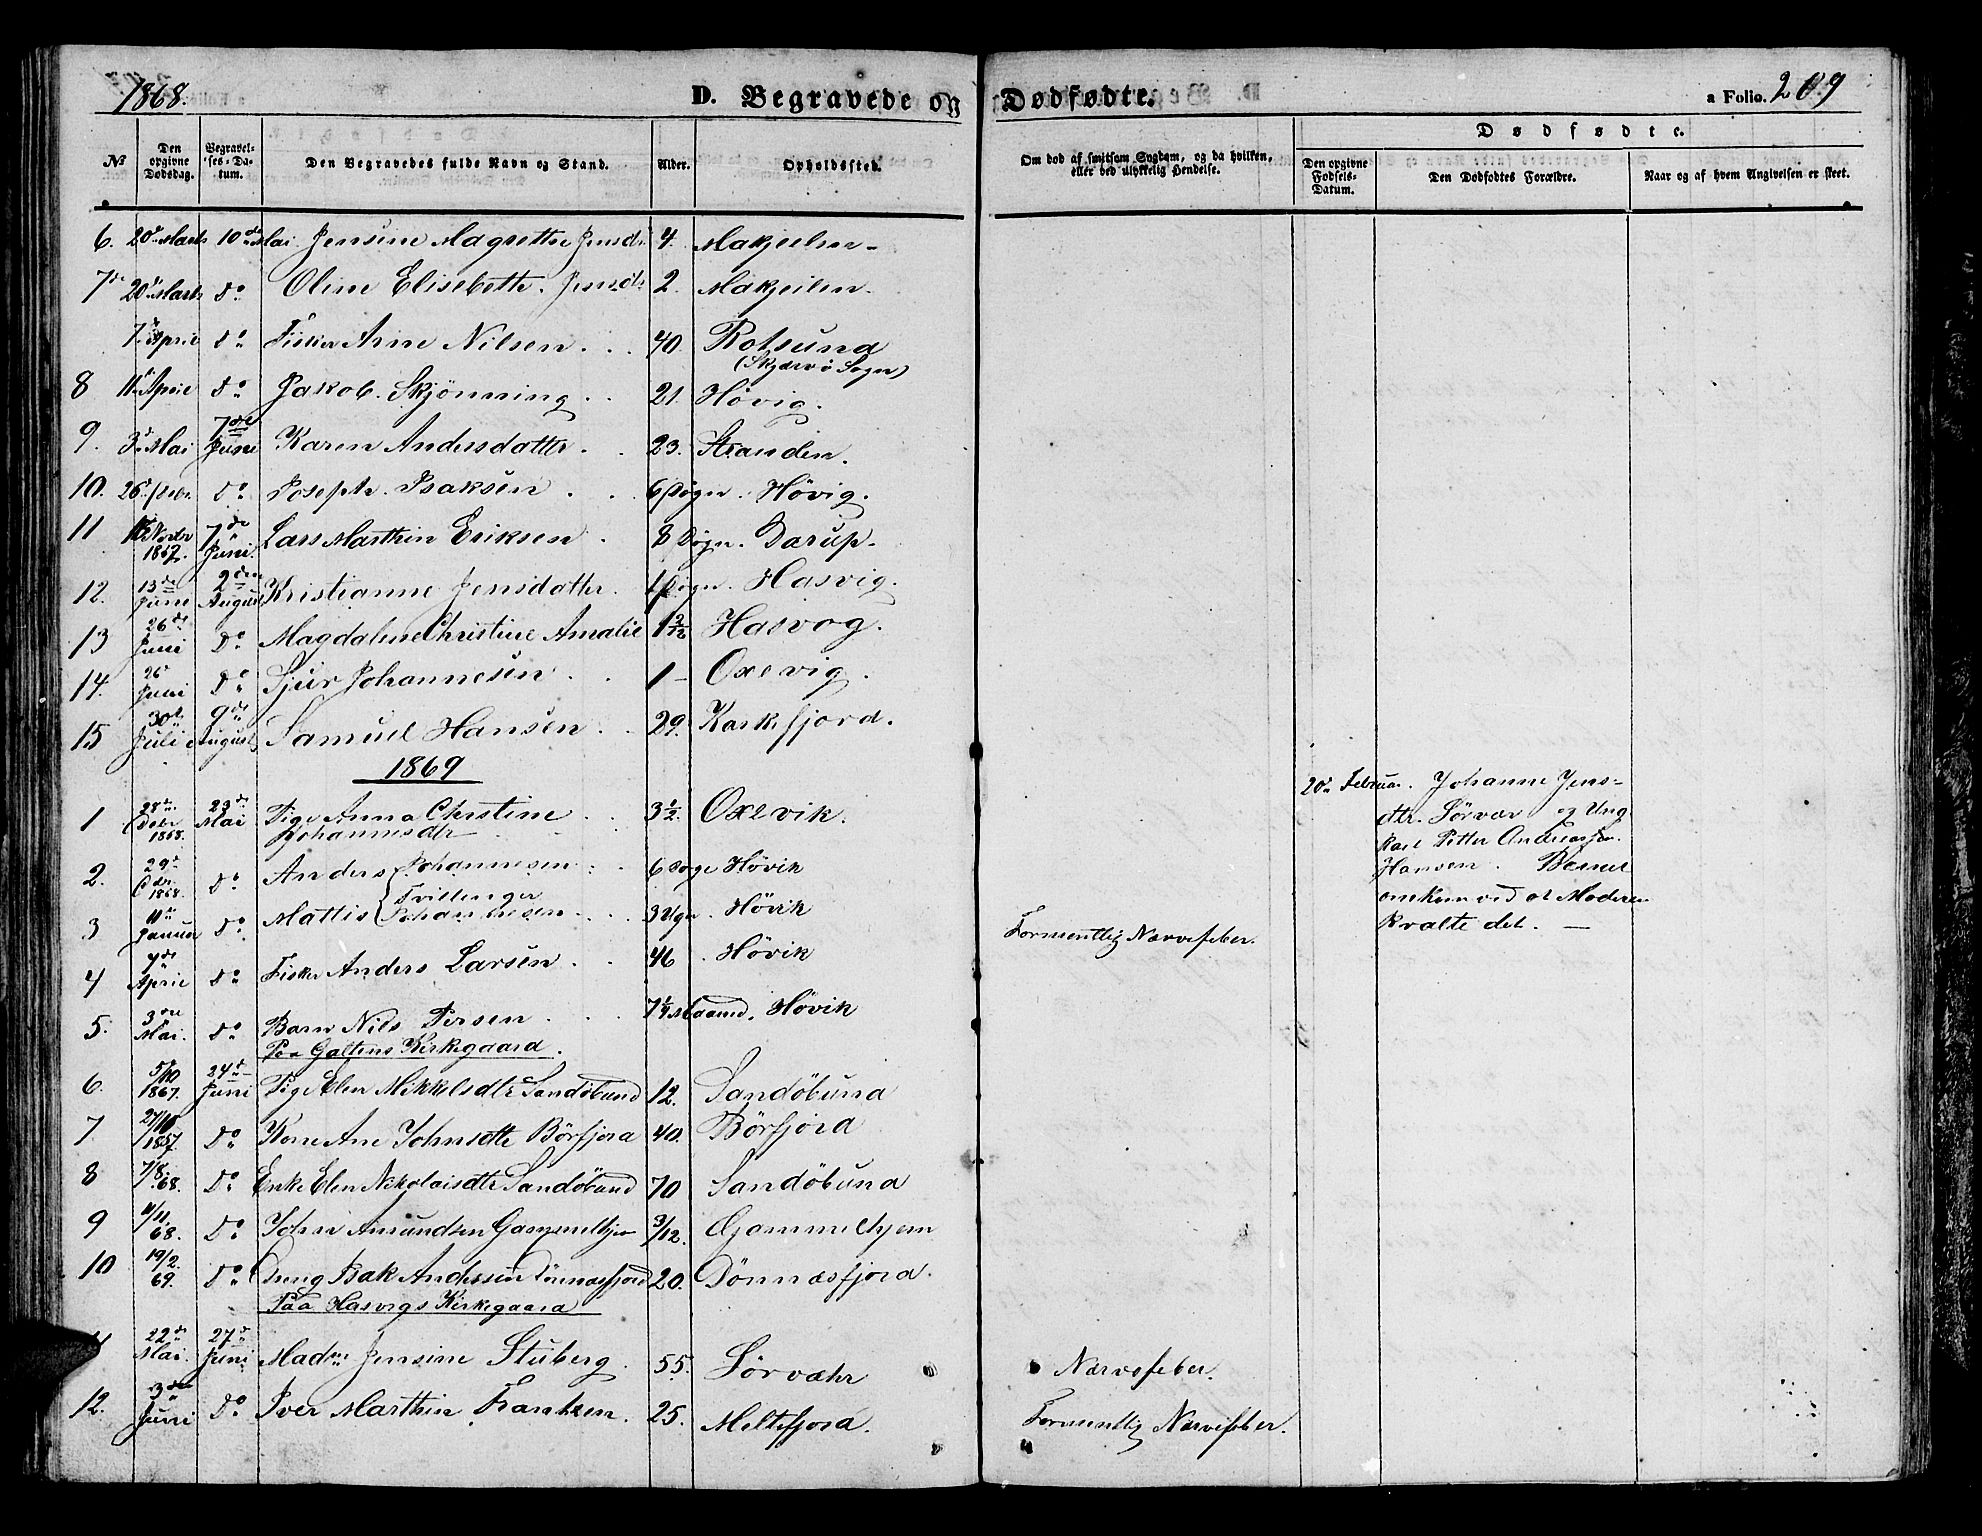 1868.
D. Begravede og Dødfødte.
a Folio. 209
№
Den opgivne Dødsdag.
Begravelses-Datum.
Den Begravedes fulde Navn og Stand.
Alder.
Opholdssted.
Om død af smitsom Sygdom, og da hvilken, eller ved ulykkelig Hendelse.
Dødfødte.
Den opgivne Fødsels-Datum.
Den Dødfødtes Forældre.
Naar og af hvem Angivelsen er skeet.
6. 20de Marts 10de Mai Jensine Magrethe Jensdr 4. Makjeilen
7de 20de Marts Do Oline Elisebette Jensdr 2. Makjeilen
7de April Do Fisker Arne Nilsen 40. Rotsund
(Skjærvö Sogn)
8 11te April Do Jakob Skjönning 21. Hövig.
9. 3de Mai 7de Juni Karen Andersdatter 23. Stranden.
10. 26de Febr. Do Joseph Isaksen 6 Døgn. Hövig.
11 Novbr 1867. 7de Juni Lars Marthin Eriksen 8 Døgn. Darup
12. 13de Juni 2den August Kristianne Jensdatter 1 Døgn. Hasvig.
13 26de Juni Do Magdalene Christine Amalie 1 2/12 Hasvog.
14. 26 Juni Do Sjur Johannesen 1 Oxevig.
15 30te Juli 9de August Samuel Hansen 29. Karkfjord.
1869
1 28de Octbr 1868. 23de Mai Pige Anna Christine 3½ Oxevik.
Johannesdtr
2. 29de 1868. Do Anders Johannesen 6 Døgn Hövik
Tvillinger
3 11te Januar Do Mattis Johannesen 3 Uger. Hövik
4 7de April Do Fisker Anders Larsen 46 Hövik Formentlig Nærvefeber.
5. 3die Mai. Do Barn Nils Persen 7¼ Maaned. Hövik
Paa Galtens Kirkegaard.
6. 5/10 1867. 24de Juni Pige Elen Mikkelsdtr Sandöbund 12. Sandöbund
7. 27/10 1867. Do Kone Ane Johnsdtr Börfjord 40. Börfjord
8 7/8 68. Do Enke Elen Nikolaisdtr Sandöbund 70 Sandöbund
9 11/11 68. Do John Amundsen Gammelhjem 3/12. Gammelhjem
10 19/2 69. Do Dreng Isak Andersen Dönnæsfjord 20. Dönnæsfjord.
Paa Hasvigs Kirkegaard
22de Mai. 27de Juni Madme Jensine Stuberg 55. Sörvær Nærvefeber.
12. 3die Juni Do Iver Marthin Frantzen. 25. Meltefjord. Formentlig Nærvefeber.
20de Februar. Johanne Jens-
dtr. Sörvær og Ung-
karl Petter Andreas
Hansen. Barnet
omkom ved at Moderen
kvalte det.